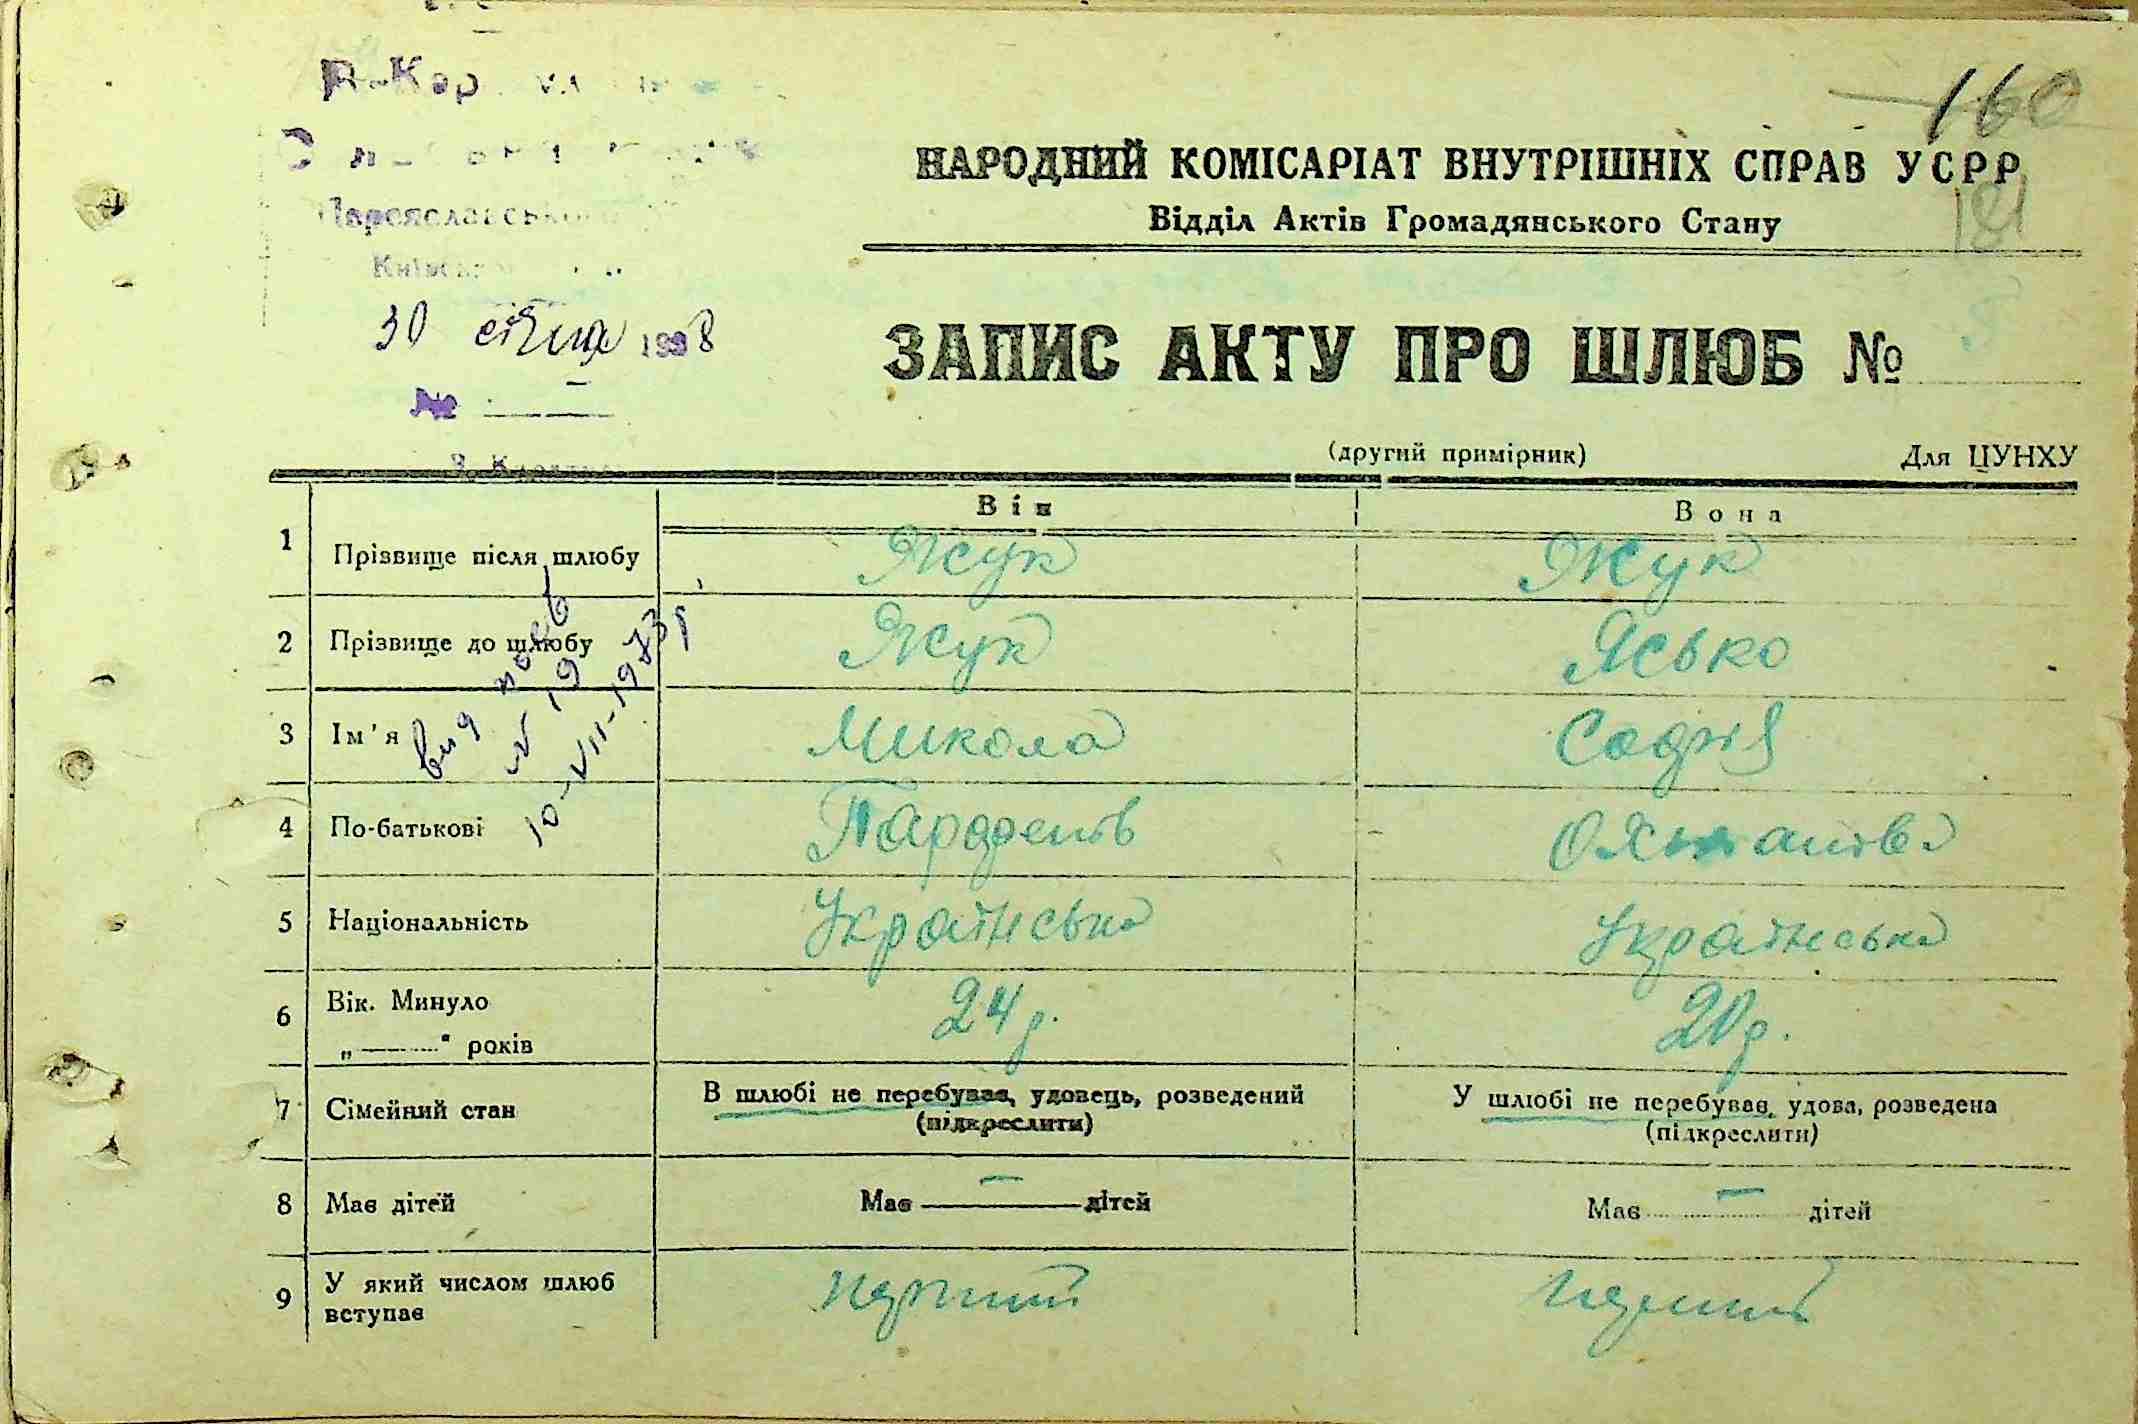 160
НАРОДНИЙ КОМІСАРІАТ ВНУТРІШНІХ СПРАВ УСРР
181
Відділ Актів Громадянського Стану
Переяславського
30 січня 1938
ЗАПИС АКТУ ПРО ШЛЮБ № 8
№ —
(другий примірник) Для ЦУНХУ
Він Вона
1 Прізвище після шлюбу Жук Жук
2 Прізвище до шлюбу Жук Яcько
3 Ім'я Микола Софія
4 По-батькові Парфентів
5 Національність Українська Українська
6 Вік. Минуло 24 р. 20 р.
„———" років
7 Сімейний стан В шлюбі не перебував, удовець, розведений У шлюбі не перебував, удова, розведена
(підкреслити) (підкреслити)
8 Має дітей Має — дітей Має — дітей
9 У який числом шлюб перший перший
вступає
вид пов
N 19
10-VII-1973р